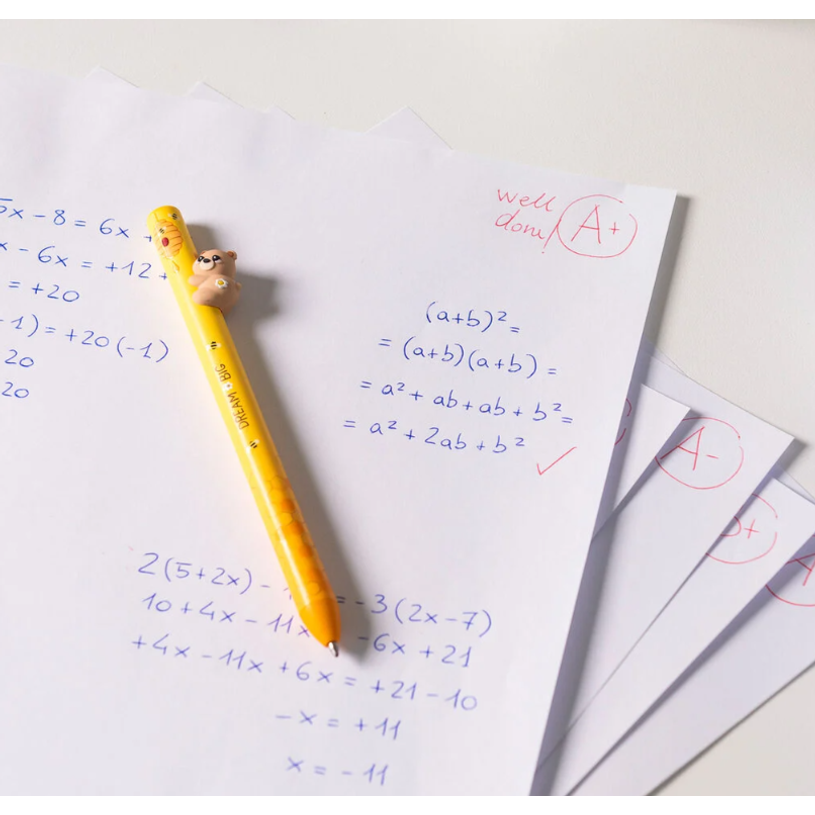 well
done!
A+
5x - 8 = 6x +
x - 6x = +12 +
= +20
-1) = +20 (-1)
20
20
(a+b)² =
= (a+b)(a+b) =
= a² + ab + ab + b² =
= a² + 2ab + b²
DREAM BIG
2(5+2x) - = -3(2x-7)
10 + 4x - 11x -6x + 21
+4x - 11x + 6x = +21 - 10
-x = +11
x = -11
A-
+
A